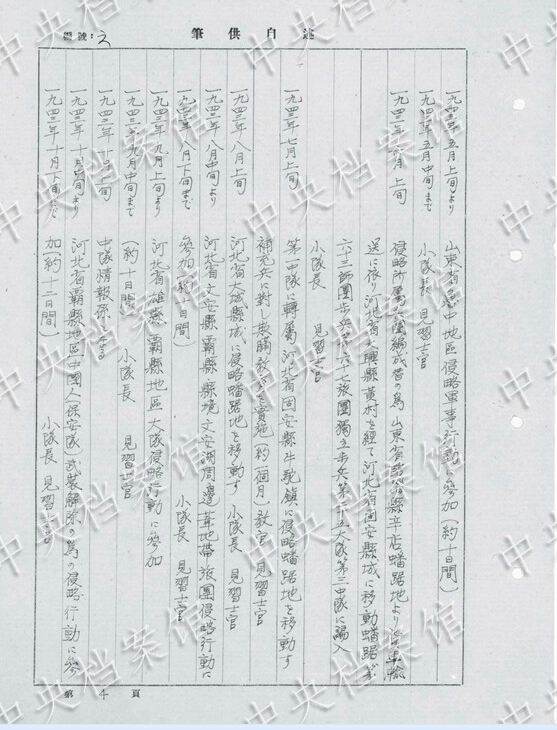 述自供筆
編號：
一九四三年五月上旬より
一九四三年五月中旬まで
山東省魯中地區侵略軍事行動に參加（約十日間）
小隊長 見習士官
一九四三年 月上旬
侵略所屬大隊編成替の為山東省 縣辛店蟠踞地より 輸
送に依り河北省大興縣黄村を經て河北省固安縣城に移動蟠踞す
六十三師團步兵第六十七旅團獨立步兵第 大隊第三中隊に編入
小隊長 見習士官
一九四三年七月上旬
第一中隊に轉屬河北省固安縣牛駝鎮に侵略蟠踞地を移動す
補充兵に対し 教育を實施（約一個月）教官 見習士官
一九四三年八月上旬
河北省大城縣城に侵略蟠踞地を移動す 小隊長 見習士官
一九四三年八月中旬より
一九四三年八月下旬まで
河北省文安縣霸縣縣境文安湖周邊葦地帶旅團侵略行動に
參加（約十日間） 小隊長 見習士官
一九四三年九月上旬より
一九四三年九月中旬まで
河北省雄縣霸縣地區大隊侵略行動に參加
（約十日間） 小隊長 見習士官
一九四三年十月上旬
中隊情報係となる
一九四三年十月中旬より
一九四三年十月下旬まで
河北省霸縣地區（中國人保安隊）武裝解除の為の侵略行動に參
加（約十二日間） 小隊長 見習士官
第4頁
中央档案馆